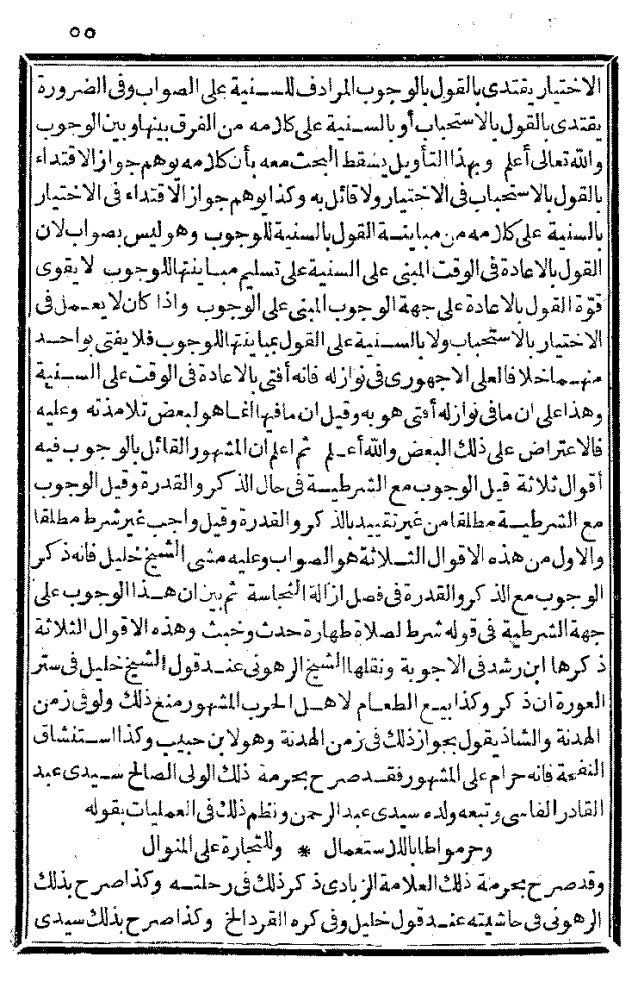 ٥٥
الاختيار يقتدى بالقول بالوجوب المرادف للسنية على الصواب وفى الضرورة
يقتدى بالقول بالاستحباب أو بالسنية على كلامه من الفرق بينها وبين الوجوب
والله تعالى أعلم وبهذا التأويل يسقط البحث معه بأن كلامه يوهم جواز الاقتداء
بالقول بالاستحباب فى الاختيار ولا قائل به وكذا يوهم جواز الاقتداء فى الاختيار
بالسنية على كلامه من مباينة القول بالسنية للوجوب وهو ليس بصواب لان
القول بالاعادة فى الوقت المبنى على السنية على تسليم مباينتها للوجوب لا يقوى
قوّة القول بالاعادة على جهة الوجوب المبنى على الوجوب واذا كان لا يعمل فى
الاختيار بالاستحباب ولا بالسنية على القول بمباينتها للوجوب فلا يفتى بواحد
منهما خلافا لعلى الاجهورى فى نوازله فانه أفتى بالاعادة فى الوقت على السنية
وهذا على ان ما فى نوازله أفتى هو به وقيل ان ما فيها انما هو لبعض تلامذته وعليه
فالاعتراض على ذلك البعض والله أعلم ثم اعلم ان المشهور القائل بالوجوب فيه
أقوال ثلاثة قيل الوجوب مع الشرطية فى حال الذكر والقدرة وقيل الوجوب
مع الشرطية مطلقا من غير تقييد بالذكر والقدرة وقيل واجب غير شرط مطلقا
والاول من هذه الاقوال الثلاثة هو الصواب وعليه مشى الشيخ خليل فانه ذكر
الوجوب مع الذكر والقدرة فى فصل ازالة النجاسة ثم بين ان هذا الوجوب على
جهة الشرطية فى قوله شرط لصلاة طهارة حدث وخبث وهذه الاقوال الثلاثة
ذكرها ابن رشد فى الاجوبة ونقلها الشيخ الرهونى عند قول الشيخ خليل فى ستر
العورة ان ذكر وكذا بيع الطعام لاهل الحرب المشهور منع ذلك ولو فى زمن
الهدنة والشاذ يقول بجواز ذلك فى زمن الهدنة وهو لابن حبيب وكذا استنشاق
النفحة فانه حرام على المشهور فقد صرح بحرمة ذلك الولى الصالح سيدى عبد
القادر الفاسى وتبعه ولده سيدى عبد الرحمن ونظم ذلك فى العمليات بقوله
وحرموا طابا للاستعمال * وللتجارة على المنوال
وقد صرح بحرمة ذلك العلامة الزيادى ذكر ذلك فى رحلته وكذا صرح بذلك
الرهونى فى حاشيته عند قول خليل وفى كره القرد الخ وكذا صرح بذلك سيدى